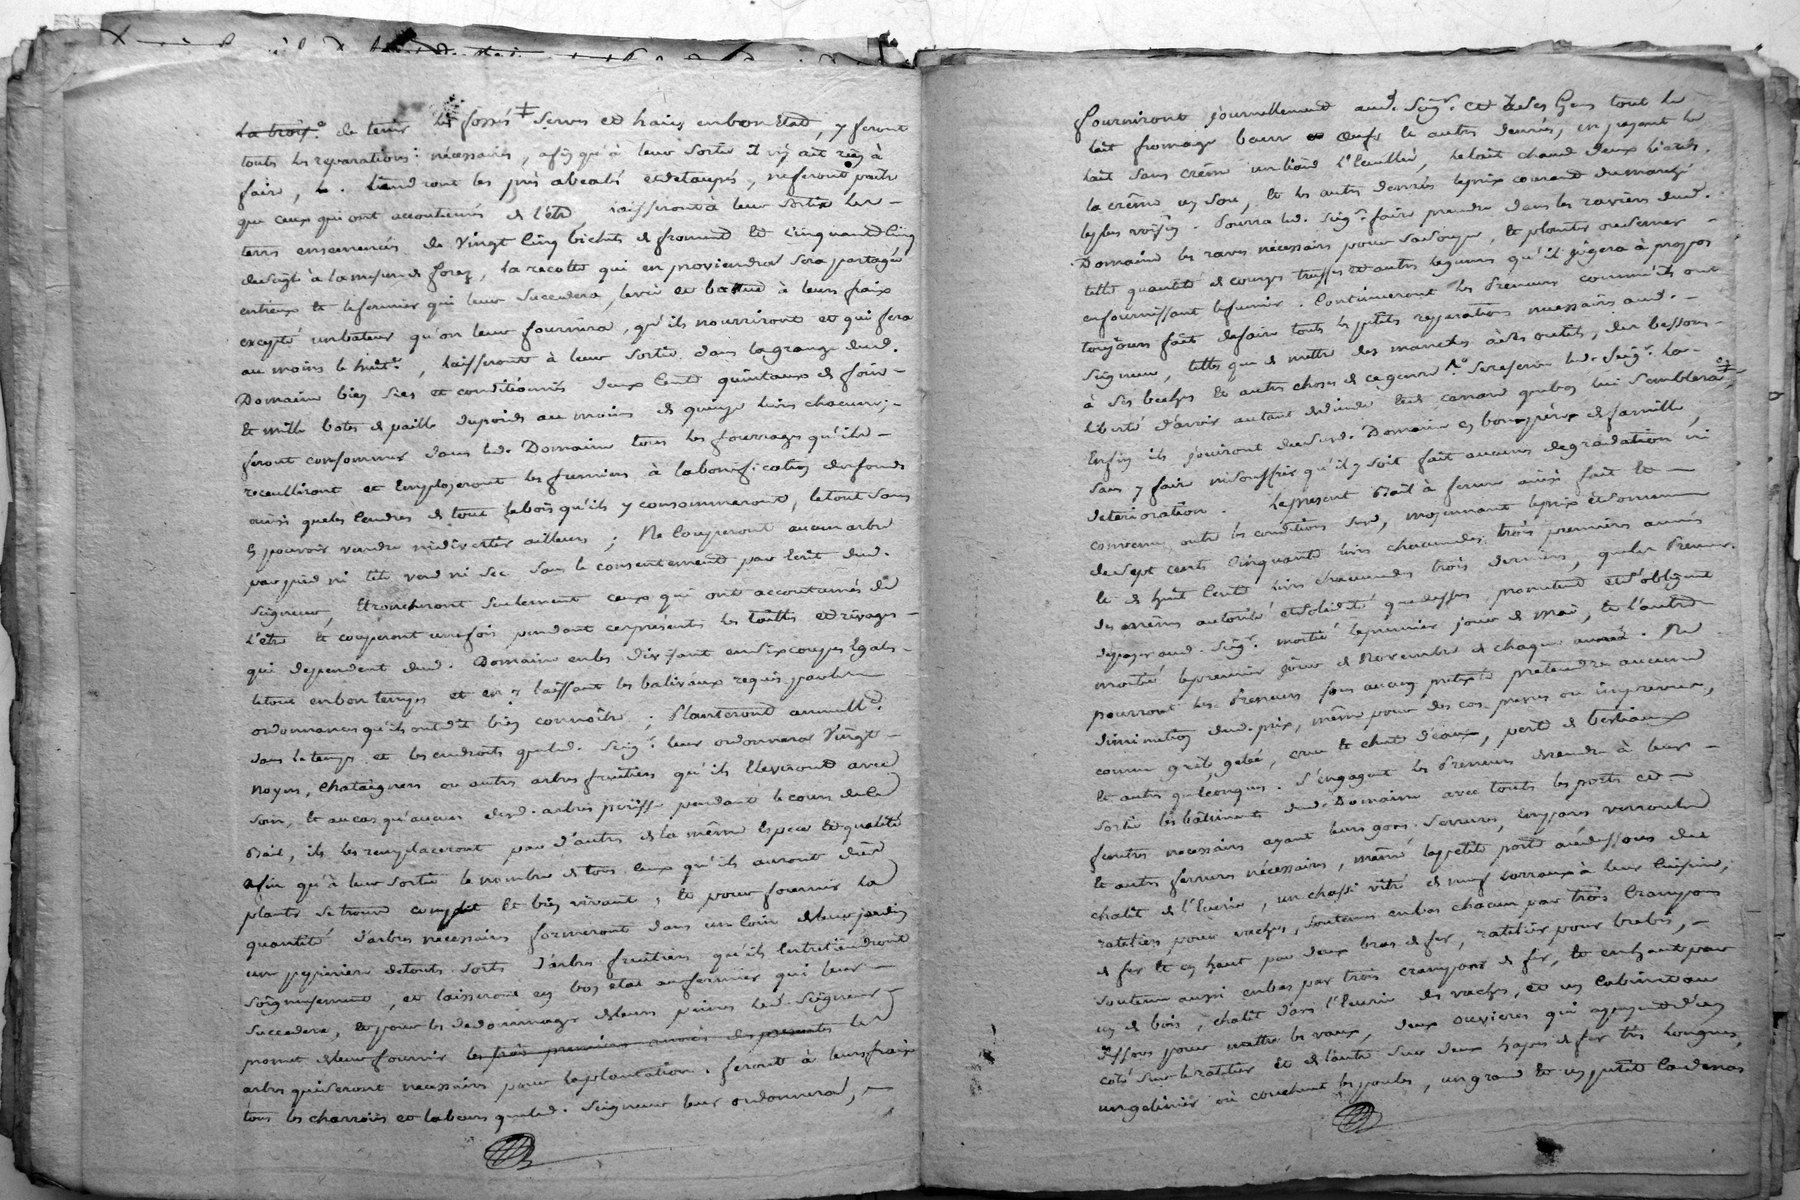 de tenir les fossés ‡ serves et haies en bon Etat, y feront
touts les reparations necessaires, afin qu'à leur sortie il n'y ait rien à
faire, tiendront les prés et detaupés, ne feront paitre
que ceux qui ont accoutumés de l'étre, laisseront à leur sortie les
terres ensemencés de vingt cinq bichets de froment et cinquante cinq
de seigle à la mesure de forez, la recolte qui en proviendra sera partagée
entr'eux et le fermier qui leur succedera, levée et battue à leurs fraix
excepté un bateur qu'on leur fournira, qu'ils nourriront et qui sera
au moins le huit.e, laisseront à leur sortie dans la grange dud.
Domaine bien secs et conditionnés deux cent quintaux de foin
et mille botes de paille du poids au moins de quinze livres chacune;
feront consommer dans led. Domaine tous les fourrages qu'ils
receuilliront et employeront les fumiers à la bonification des fonds
ainsi que les cendres de tout le bois qu'ils y consommeront, le tout sans
y pouvoir vendre ni divertir ailleurs; Ne couperont aucun arbre
par pied ni tête verd ni sec sans le consentement par Ecrit dud.
Seigneur, Etroncheront seulement ceux qui ont accoutumés de
l'étre et couperont une fois pendant ces présentes les taillis et rivages
qui dependent dud. Domaine en les divisant en six coupes Egales
le tout en bon temps et en y laissant les baliveaux requis par les
ordonnances qu'ils ont dit bien connoître; Planteront annuell.t
dans le temps et les endroits que led. Seig.r leur ordonnera vingt
noyers, chataigners ou autres arbres fruitiers qu'ils Eleveront avec
soin, et au cas qu'aucuns desd. arbres périsse pendant le cours de ce
Bail, ils les remplaceront par d'autres de la même Espece et qualité
afin qu'à leur sortie le nombre de tous ceux qu'ils auront dûs
planter se trouve complet et bien vivant; et pour fournir la
quantité d'arbres necessaires formeront dans un coin de leur jardin
une pepiniere de touts sorts d'arbres fruitiers qu'ils entretiendront
soigneusement, et laisseront en bon etat au fermier qui leur
succedera, et pour les dedommager de leurs peines led. Seigneur
promet de leur fournir les trois premieres années des presentes les
arbres qui seront necessaires pour la plantation. feront à leurs fraix
tous les charrois et labeurs que led. Seigneur leur ordonnera,
fourniront journellement aud. Seig.r et à ses Gens tout le
lait fromage beurre œufs et autres denrées, en payant le
lait sans crême un liard l'Ecuellée, le lait chaud deux liards,
la crême un sou, et les autres denrées le prix courant du marché
le plus voisin. Pourra led. Seig.r faire prendre dans les raviers dud.
Domaine les raves necessaires pour sa soupe, et planter ou semer
telle quantité de courges truffes et autres legumes qu'il jugera à propos
en fournissant le fumier. Continueront les Preneurs comme ils ont
toujours fait de faire touts les petites reparations necessaires aud.
Seigneur, telles que de mettre des manches à ses outils,
à ses beches et autres choses de ce genre. Se reserve led. Seig.r la
liberté d'avoir autant de dindes et de canards que bon lui semblera,
Enfin ils jouiront dud. Domaine en bons pères de famille,
sans y faire ni souffrir qu'il y soit fait aucune degradation ni
deterioration. Le present Bail à ferme ainsi fait et
convenu outre les conditions susd, moyennant le prix et somme
de sept cents cinquante livres chacune des trois premieres années
et de huit cents livres chacune des trois dernieres, que les Preneurs
des mêmes autorité et solidité que dessus, promettent et s'obligent
de payer aud. Seig.r moitié le premier jour de mai, et l'autre
moitié le premier jour de Novembre de chaque année. Ne
pourront les Preneurs sous aucun pretexte prétendre aucune
diminution dud. prix, même pour des cas prevus ou imprevus,
comme grêle, gelée, crue et chute d'eaux, perte de bestiaux
et autres quelconques. S'engagent les Preneurs de rendre à leur
sortie les bâtiments dud. Domaine avec touts les portes et
fenêtres necessaires ayant leurs gons, serrures, verrouls
et autres ferrures nécessaires, même la petite porte au dessous du
chalit de l'Ecurie, un chassi vitré de neuf carraux à leur cuisine;
rateliers pour vaches, soutenus en bas chacun par trois crampons
de fer et en haut par deux bras de fer, ratelier pour brebis,
soutenu aussi en bas par trois crampons de fer, et en haut par
un de bois, chalit dans l'Ecurie des vaches, et un cabinet au
dessous pour mettre les veaux, deux civieres qui
coté sur le ratelier et de l'autre sur deux de fer très longues,
un galinier où couchent les poules, un grand et un petit cadenas